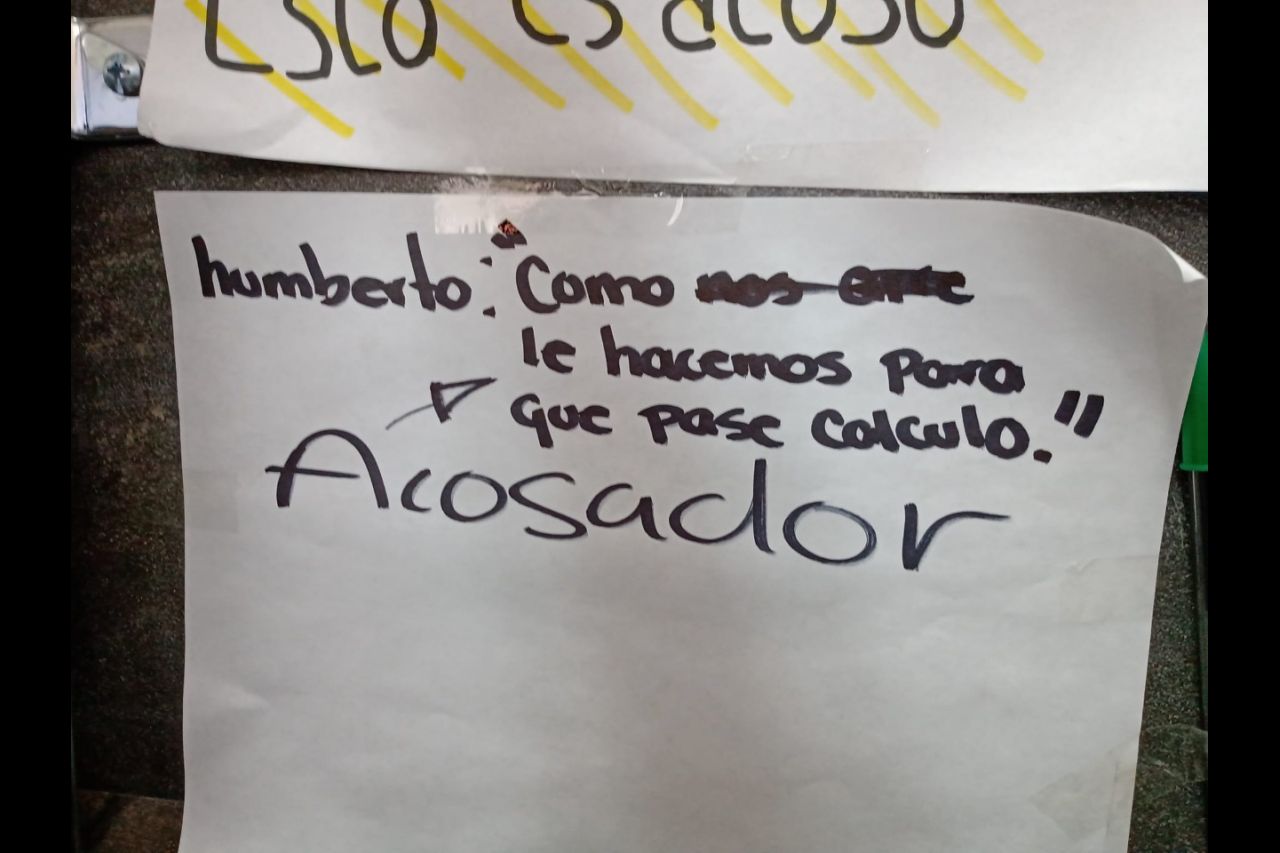 Esto es acoso
humberto: "Como
le hacemos para
que pase calculo."
Acosador